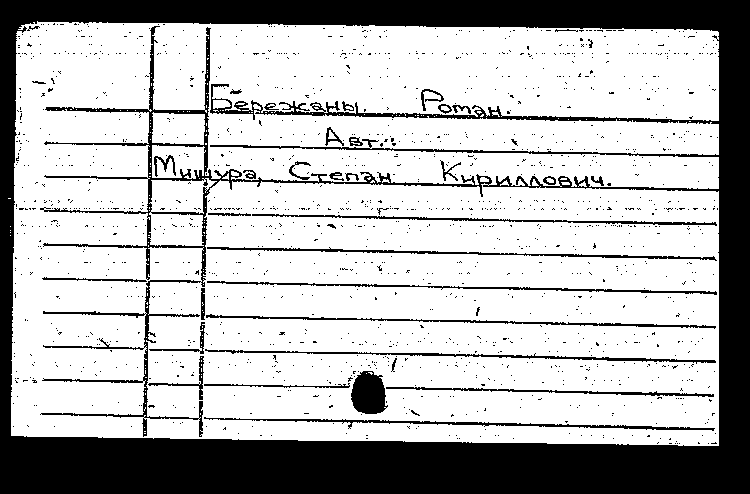 Бережаны. Роман.
Авт.:
Мишура, Степан Кириллович.